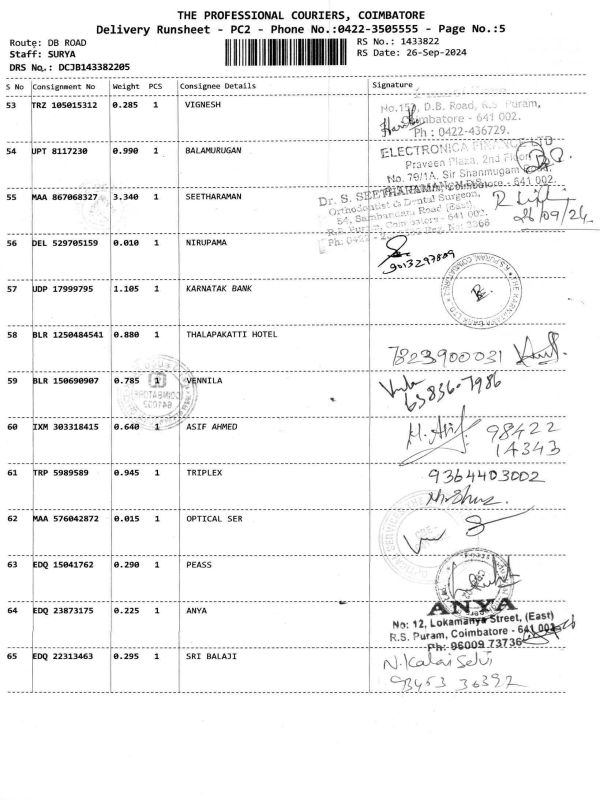 THE PROFESSIONAL COURIERS, COIMBATORE
Delivery Runsheet - PC2 - Phone No.:0422-3505555 - Page No.:5
Route: DB ROAD
Staff: SURYA
DRS No.: DCJB143382205
RS No.: 1433822
RS Date: 26-Sep-2024
S No Consignment No Weight PCS Consignee Details Signature
53 TRZ 105015312 0.285 1 VIGNESH
D.B. Road, R.S. Puram,
Coimbatore - 641 002.
Ph : 0422-436729.
54 UPT 8117230 0.990 1 BALAMURUGAN
ELECTRONICA FINANCE LTD
Praveen Plaza, 2nd Floor
No. 79/1A, Sir Shanmugam Road,
Coimbatore - 641 002.
55 MAA 867068327 3.340 1 SEETHARAMAN
Dr. S. SEETHARAMAN,
Orthodontist & Dental Surgeon,
54, Sambandam Road (East)
R.S. Puram, Coimbatore - 641 002.
26/09/24
56 DEL 529705159 0.010 1 NIRUPAMA
9013297809
57 UDP 17999795 1.105 1 KARNATAK BANK
58 BLR 1250484541 0.880 1 THALAPAKATTI HOTEL
7823900031
59 BLR 150690907 0.785 1 VENNILA
63836-7986
60 IXM 303318415 0.640 1 ASIF AHMED
98422
14343
61 TRP 5989589 0.945 1 TRIPLEX
9364403002
62 MAA 576042872 0.015 1 OPTICAL SER
63 EDQ 15041762 0.290 1 PEASS
64 EDQ 23873175 0.225 1 ANYA
ANYA
No: 12, Lokamanya Street, (East)
R.S. Puram, Coimbatore - 641 002
Ph: 96009 73736
65 EDQ 22313463 0.295 1 SRI BALAJI
N. Kalai Selvi
93453 36392